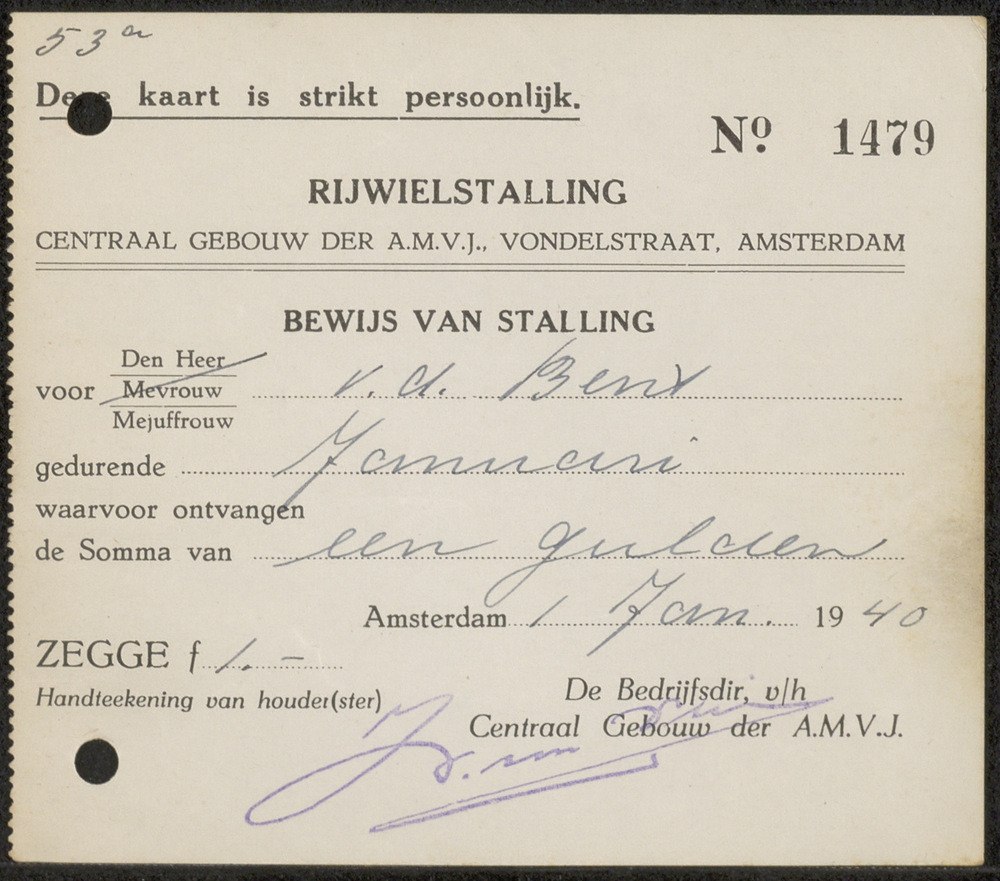 53a
Deze kaart is strikt persoonlijk.
Nº 1479
RIJWIELSTALLING
CENTRAAL GEBOUW DER A.M.V.J., VONDELSTRAAT, AMSTERDAM
BEWIJS VAN STALLING
Den Heer
voor Mevrouw v. d. Bent
Mejuffrouw
gedurende Januari
waarvoor ontvangen
de Somma van een gulden
Amsterdam 1 Jan. 1940
ZEGGE f 1.-
Handteekening van houder(ster)
De Bedrijfsdir, v/h
Centraal Gebouw der A.M.V.J.